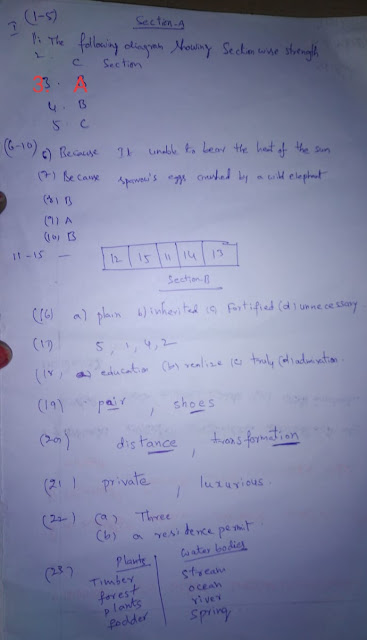 Section-A
I (1-5)
1. The following diagram showing Section wise strength
2. C Section
3. A
4. B
5. C
(6-10) 6) Because It unable to bear the heat of the sun
(7) Because sparrow's eggs crushed by a wild elephant
(8) B
(9) A
(10) B
11-15 - 12 15 11 14 13
Section-B
(16) a) plain b) inherited (c) fortified (d) unnecessary
(17) 5, 1, 4, 2
(18) a) education (b) realize (c) truly (d) admiration.
(19) pair, shoes
(20) distance, transformation
(21) private, luxurious
(22) (a) Three
(b) a residence permit.
(23) Plants water bodies
Timber stream
forest ocean
plants river
fodder spring